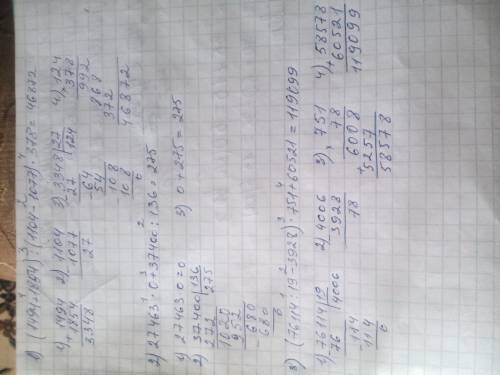 1) (1494+1854):(1104-1077)·378=46872
1) +1494
1854
3348
2) -1104
1077
27
3) 3348|27
27 |124
-64
54
108
108
0
4) ×124
378
992
868
372
46872
2) 27463·0+37400:136=275
1) 27463·0=0
2) 37400|136
272 |275
1020
952
680
680
0
3) 0+275=275
3) (76114:19-3928)·751+60521=119099
1) -76114|19
76 |4006
-114
114
0
2) -4006
3928
78
3) ×751
78
+6008
5257
58578
4) +58578
60521
119099